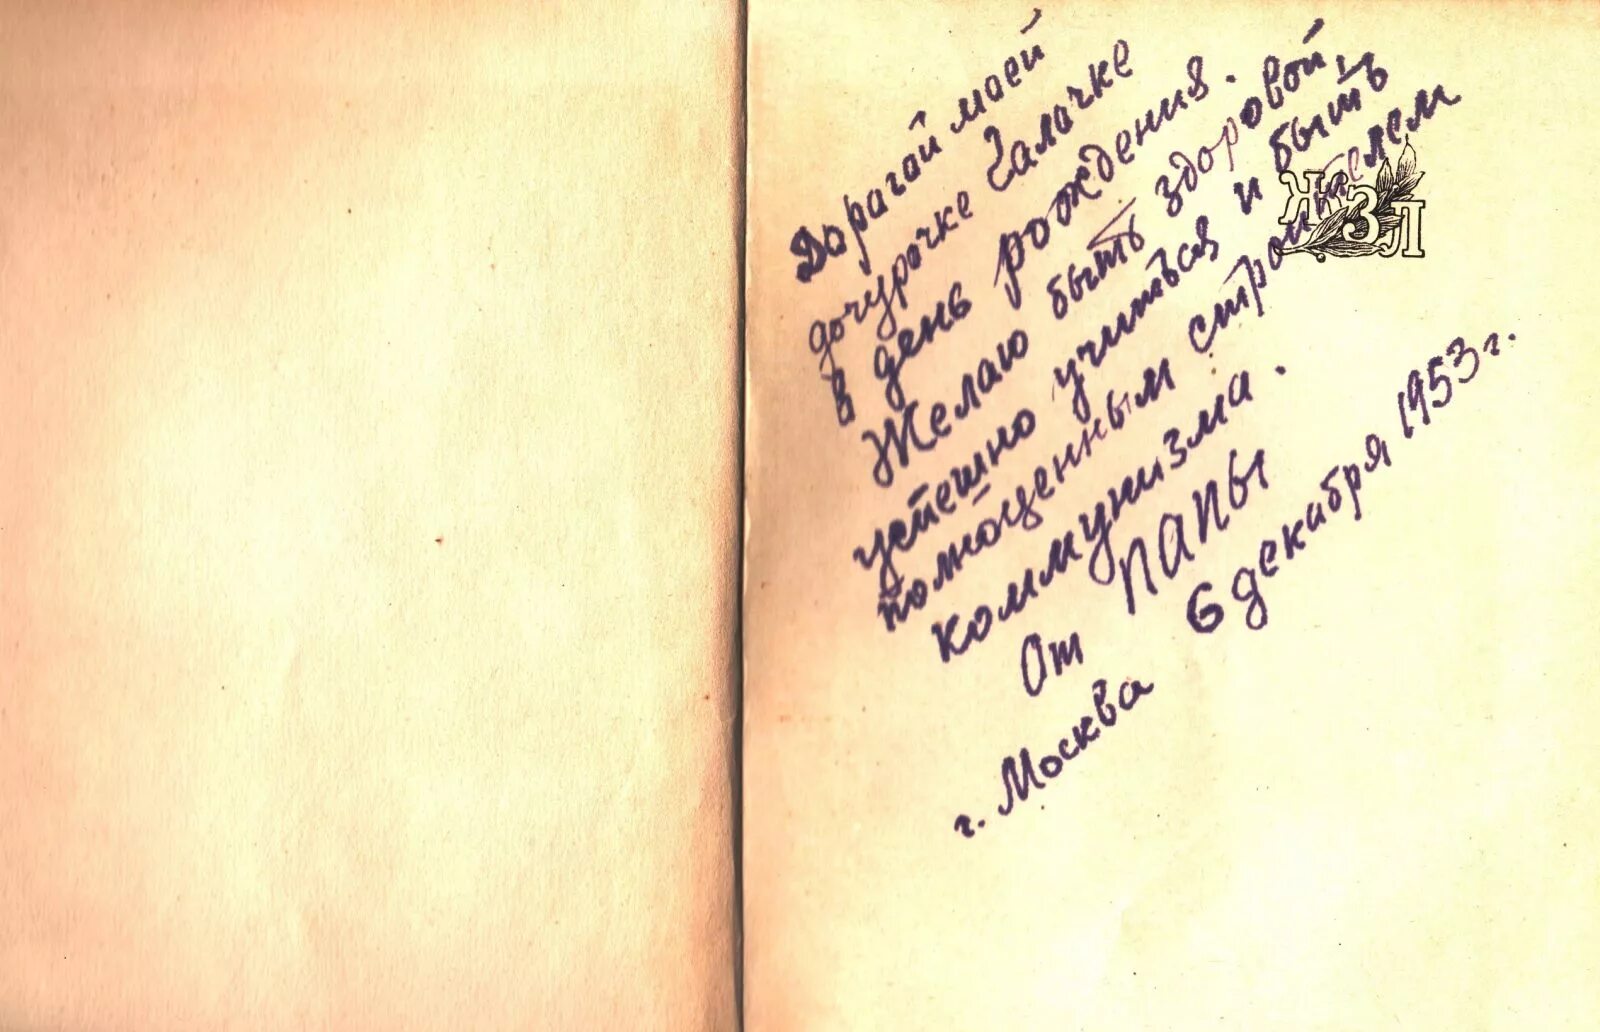 Дорагай моей
дочурочке Галачке
в день рождения.
Желаю быть здоровой,
успешно учиться и быть
полноценным строителем
коммунизма.
От ПАПЫ
г. Москва 6 декабря 1953 г.
ЖЗЛ